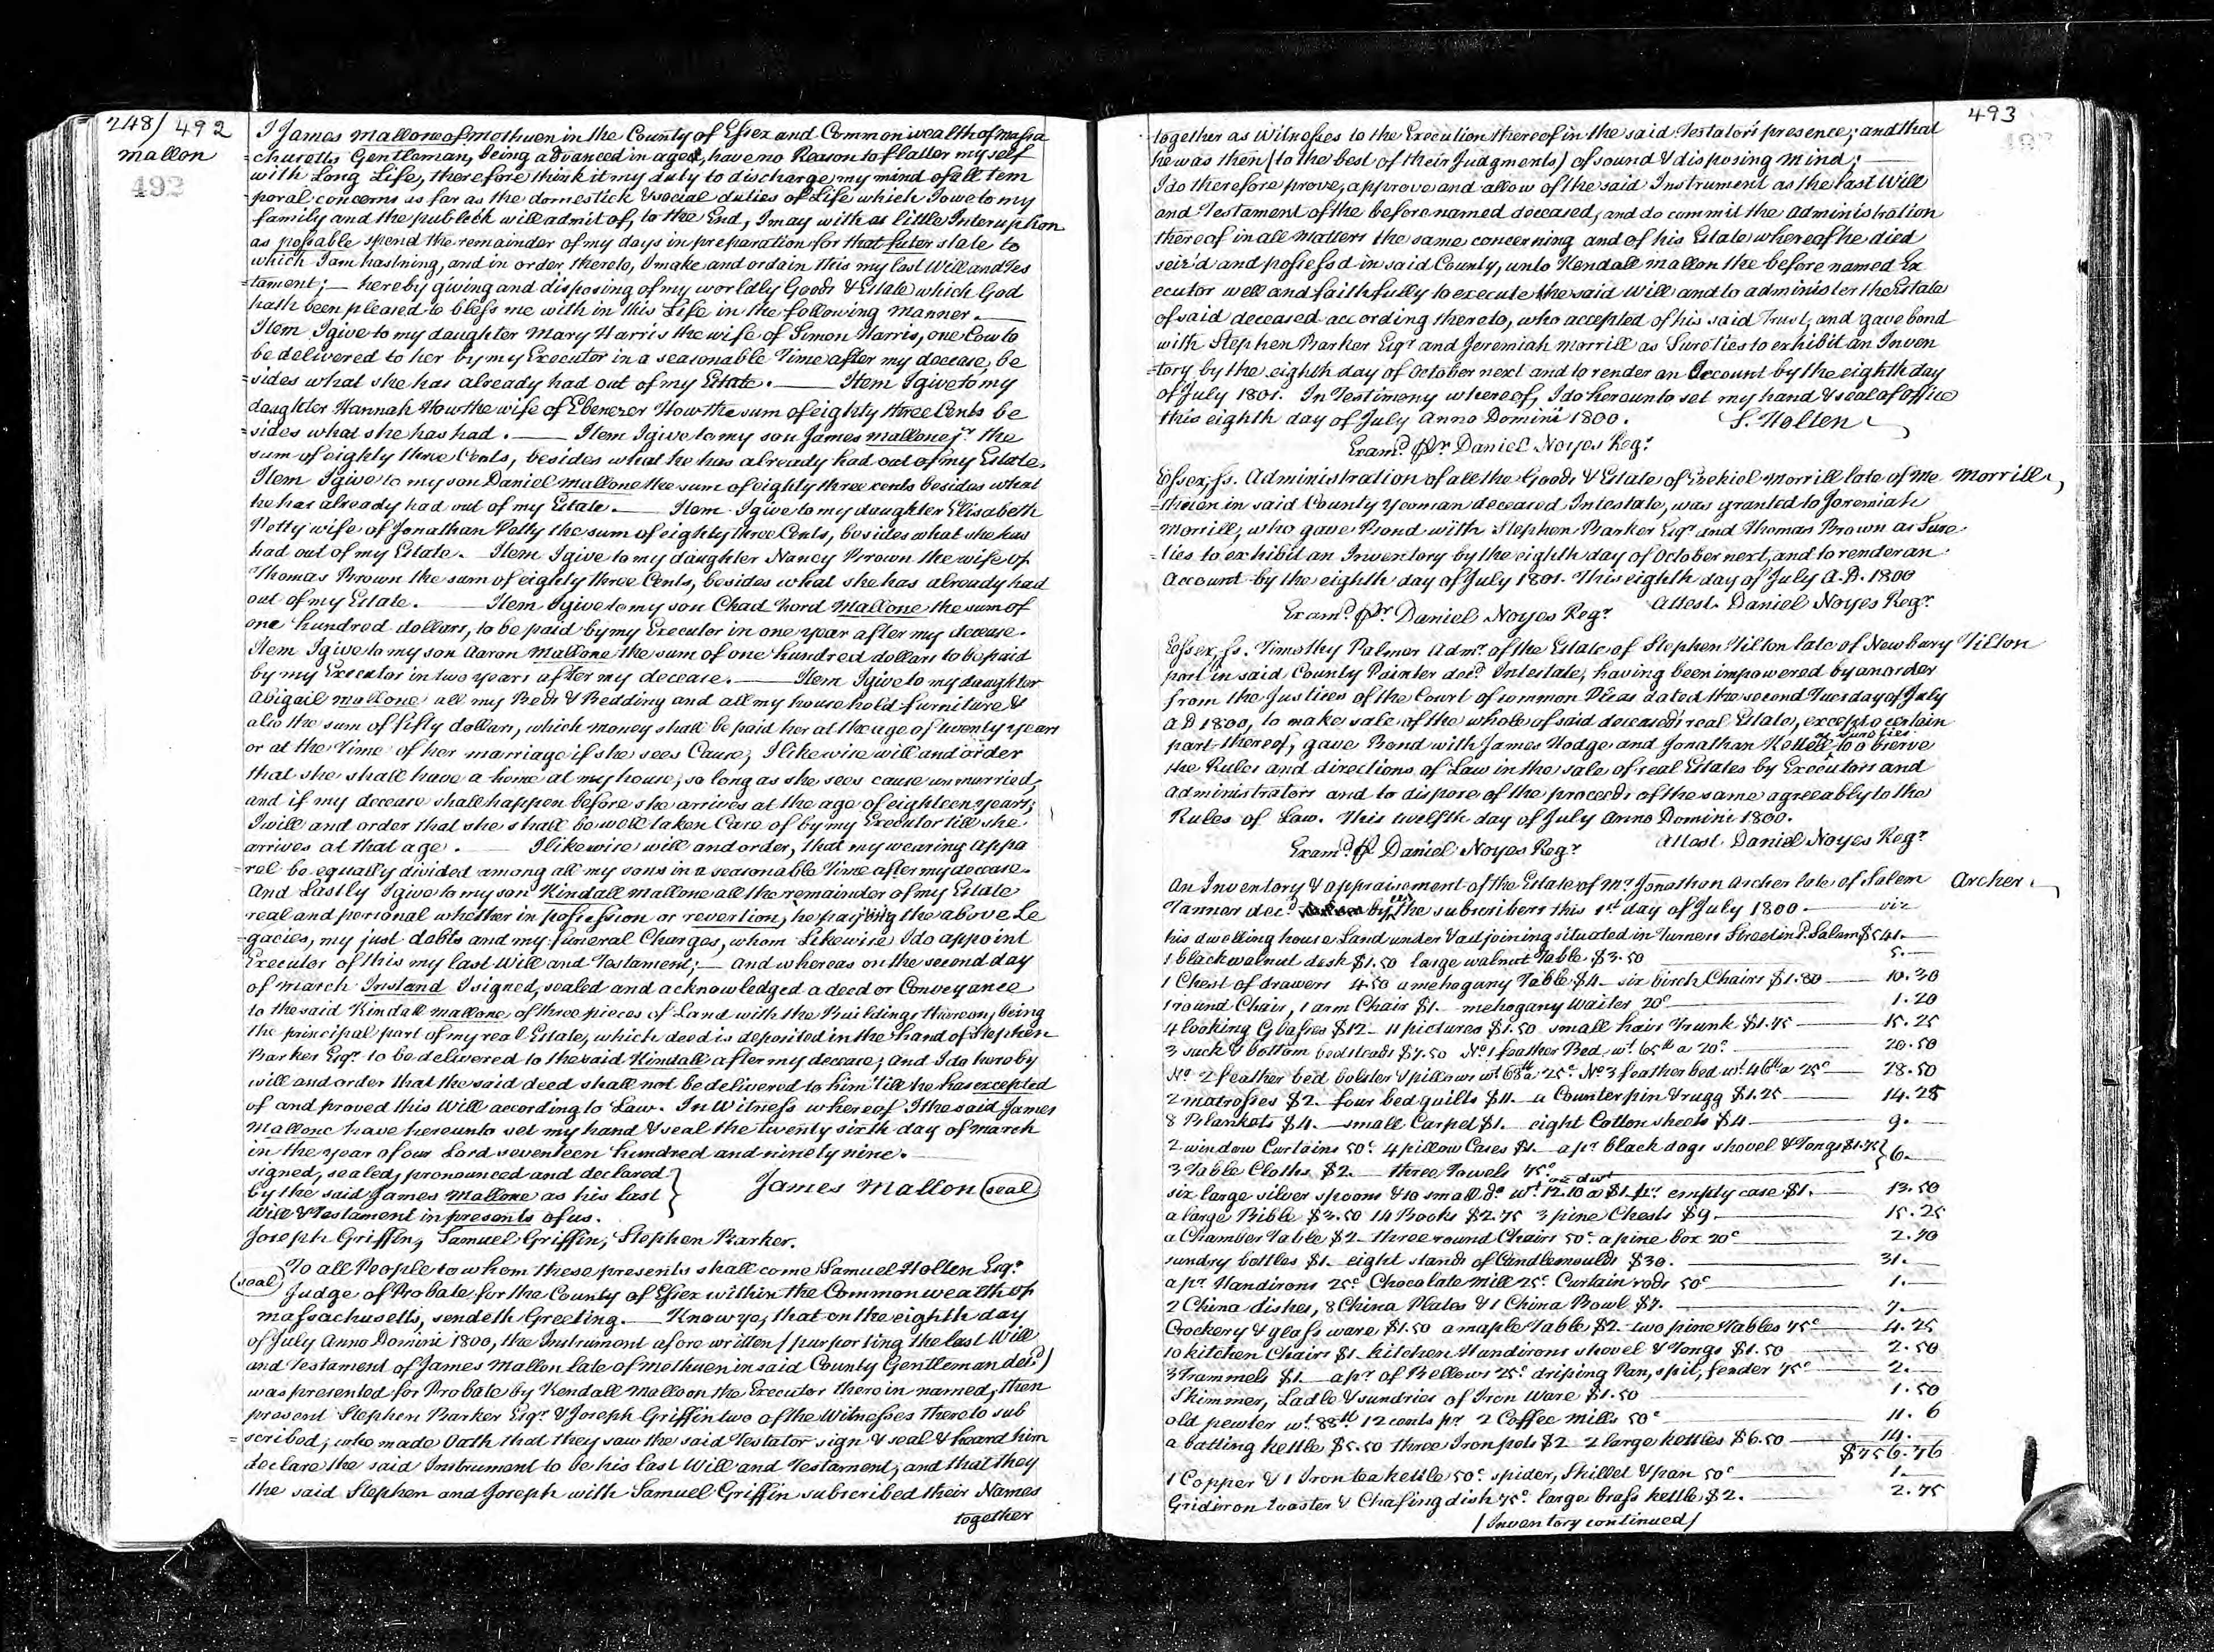 248/ 492
mallon
492
I James mallone of mothuen in the County of Essex and Commonwealth of massa
=chusetts Gentleman, being advanced in aged, have no Reason to flatter myself
with Long Life, therefore think it my duty to discharge my mind of all tem
-poral concerns so far as the domestick & social duties of Life which I owe to my
family and the publick will admit of, to the End, I may with as little Interuption
as possable spend the remainder of my days in preparation for that futer state to
which I am hastning, and in order thereto, I make and ordain this my last Will and Tes
=tament; — hereby giving and disposing of my worldly Goods & Estate which God
hath been pleased to bless me with in this Life in the following manner. —
Item I give to my daughter Mary Harris the wife of Simon Harris, one Cow to
be delivered to her by my Executor in a seasonable Time after my decease, be
=sides what she has already had out of my Estate. — Item I give to my
daughter Hannah How the wife of Ebenezer How the sum of eighty three Cents be
=sides what she has had. — Item I give to my son James mallone jr. the
sum of eighty three Cents, besides what he has already had out of my Estate.
Item I give to my son Daniel mallone the sum of eighty three cents besides what
he has already had out of my Estate. — Item I give to my daughter Elisabeth
Petty wife of Jonathan Petty the sum of eighty three Cents, besides what she has
had out of my Estate. Item I give to my daughter Nancy Brown the wife of
Thomas Brown the sum of eighty three Cents, besides what she has already had
out of my Estate. — Item I give to my son Chad Nord mallone the sum of
one hundred dollars, to be paid by my Executor in one year after my decease.
Item I give to my son Aaron mallone the sum of one hundred dollars to be paid
by my Executor in two years after my decease. — Item I give to my daughter
Abigail mallone all my Beds & Bedding and all my household furniture &
also the sum of fifty dollars, which money shall be paid her at the age of twenty years
or at the Time of her marriage if she sees Cause; I likewise will and order
that she shall have a home at my house, so long as she sees cause unmarried,
and if my decease shall happen before she arrives at the age of eighteen years,
I will and order that she shall be well taken Care of by my Executor till she
arrives at that age. — I likewise will and order, that my wearing appa
=rel be equally divided among all my sons in a seasonable Time after my decease.
And Lastly I give to my son Kindall mallone all the remainder of my Estate
real and personal whether in possession or revertion, he paying the above Le
=gacies, my just debts and my funeral Charges, whom Likewise I do appoint
Executor of this my last Will and Testament; — and whereas on the second day
of march Instand I signed, sealed and acknowledged a deed or Conveyance
to the said Kindall mallone of three pieces of Land with the Buildings thereon, being
the principal part of my real Estate, which deed is deposited in the hand of Stephen
Barker Esqr. to be delivered to the said Kindall after my decease; and I do hereby
will and order that the said deed shall not be delivered to him till he has excepted
of and proved this Will according to Law. In Witness whereof I the said James
Mallone have hereunto set my hand & seal the twenty sixth day of march
in the year of our Lord seventeen hundred and ninety nine.
signed, sealed, pronounced and declared
by the said James Mallone as his last } James Mallon (seal)
Will & Testament in presents of us.
Joseph Griffin, Samuel Griffin, Stephen Barker.
To all People to whom these presents shall come Samuel Holten Esqr.
(seal) Judge of Probate for the County of Essex within the Commonwealth of
massachusetts, sendeth Greeting. — Know ye, that on the eighth day
of July Anno Domini 1800, the Instrument afore written (purporting the last Will
and Testament of James Mallon late of Methuen in said County Gentleman decd.)
was presented for Probate by Kendall Malloon the Executor therein named, then
present Stephen Barker Esqr. & Joseph Griffin two of the Witnesses thereto sub
=scribed, who made Oath that they saw the said Testator sign & seal & heard him
declare the said Instrument to be his last Will and Testament, and that they
the said Stephen and Joseph with Samuel Griffin subscribed their Names
together
493
together as Witnesses to the Execution thereof in the said Testator's presence; and that
he was then (to the best of their Judgments) of sound & disposing mind; —
I do therefore prove, approve and allow of the said Instrument as the last Will
and Testament of the before named deceased, and do commit the administration
thereof in all matters the same concerning and of his Estate whereof he died
seiz'd and possess'd in said County, unto Kendall mallon the before named Ex
ecutor well and faithfully to execute the said Will and to administer the Estate
of said deceased according thereto, who accepted of his said Trust, and gave bond
with Stephen Barker Esqr. and Jeremiah morrill as Sureties to exhibit an Inven
=tory by the eighth day of October next and to render an Account by the eighth day
of July 1801. In Testimony whereof, I do hereunto set my hand & seal of Office
this eighth day of July Anno Domini 1800. S. Holten
Examd. pr. Daniel Noyes Regr.
Essex, ss. Administration of all the Goods & Estate of Ezekiel Morrill late of Me Morrill
=thuen in said County Yeoman deceased Intestate, was granted to Jeremiah
Morrill, who gave Bond with Stephen Barker Esqr. and Thomas Brown as Sure
=ties to exhibit an Inventory by the eighth day of October next, and to render an
Account by the eighth day of July 1801. This eighth day of July A.D. 1800
Examd. pr. Daniel Noyes Regr. Attest. Daniel Noyes Regr.
Essex, ss. Timothy Palmer Admr. of the Estate of Stephen Tilton late of Newbury Tilton
port in said County Painter decd. Intestate, having been impowered by an order
from the Justices of the Court of common Pleas dated the second Tuesday of July
A.D 1800, to make sale of the whole of said deceased's real Estate, except a certain
part thereof, gave Bond with James Hodge and Jonathan Kettell as sureties to observe
the Rules and directions of Law in the sale of real Estates by Executors and
administrators and to dispose of the proceeds of the same agreeably to the
Rules of Law. This twelfth day of July Anno Domini 1800.
Examd. pr. Daniel Noyes Regr. Attest. Daniel Noyes Regr.
An Inventory & appraisement of the Estate of Mr. Jonathan Archer late of Salem Archer
Tanner decd. by us the subscribers this 1st day of July 1800. — viz
his dwelling house Land under & adjoining situated in Turners Street in P. Salem $541.—
1 black walnut desk $1.50 large walnut Table $3.50 — 5.—
1 Chest of drawers 4.50 a mehogany Table $4— six birch Chairs $1.80 — 10.30
1 round Chair, 1 arm Chair $1.— mehogany Waiter 20c — 1.20
4 looking Glasses $12— 11 pictures $1.50 small hair Trunk $1.75 — 15.25
3 suck & bottom bedsteads $7.50 No. 1 feather Bed, wt. 65lb a 20c. — 20.50
No. 2 feather bed bolster & pillows wt. 68lb a 25c. No. 3 feather bed wt. 46lb a 25c — 28.50
2 matrosses $2. four bed quilts $11.— a Counterpin & rugg $1.25 — 14.25
8 Blankets $4.— small Carpet $1.— eight Cotton sheets $4 — 9.—
2 window Curtains 50c. 4 pillow Cases $1.— a pr. black dogs shovel & Tongs $1.75 }
3 Table Cloths $2.— three Towels 75c } 6.—
six large silver spoons & 10 small do. wt. 12.10 oz dwt a $1. pr. empty case $1. — 13.50
a large Bible $3.50 14 Books $2.75 3 pine Chests $9 — 15.25
a Chamber Table $2— three round Chairs 50c. a pine box 20c — 2.70
sundry bottles $1.— eight stands of Candlemoulds $30. — 31.—
a pr. Handirons 25c. Chocolate Mill 25c. Curtain rods 50c — 1.—
2 China dishes, 8 China Plates & 1 China Bowl $7. — 7.—
Crockery & glass ware $1.50 a maple Table $2— two pine Tables 75c — 4.25
10 kitchen Chairs $1— kitchen Handirons shovel & Tongs $1.50 — 2.50
3 Trammels $1— a pr. of Bellows 25c. driping Pan, spit, fender 75c — 2.—
Skimmer, Ladle & sundries of Iron Ware $1.50 — 1.50
old pewter wt. 88lb. 12 cents pr. 2 Coffee mills 50c — 11.6
a batting kettle $5.50 three Iron pots $2 2 large kettles $6.50 — 14.—
$756.76
1 Copper & 1 Iron tea kettle 50c. spider, Skillet & pan 50c — 1.—
Gridiron toaster & Chafing dish 75c. large brass kettle $2. — 2.75
(Inventory continued)